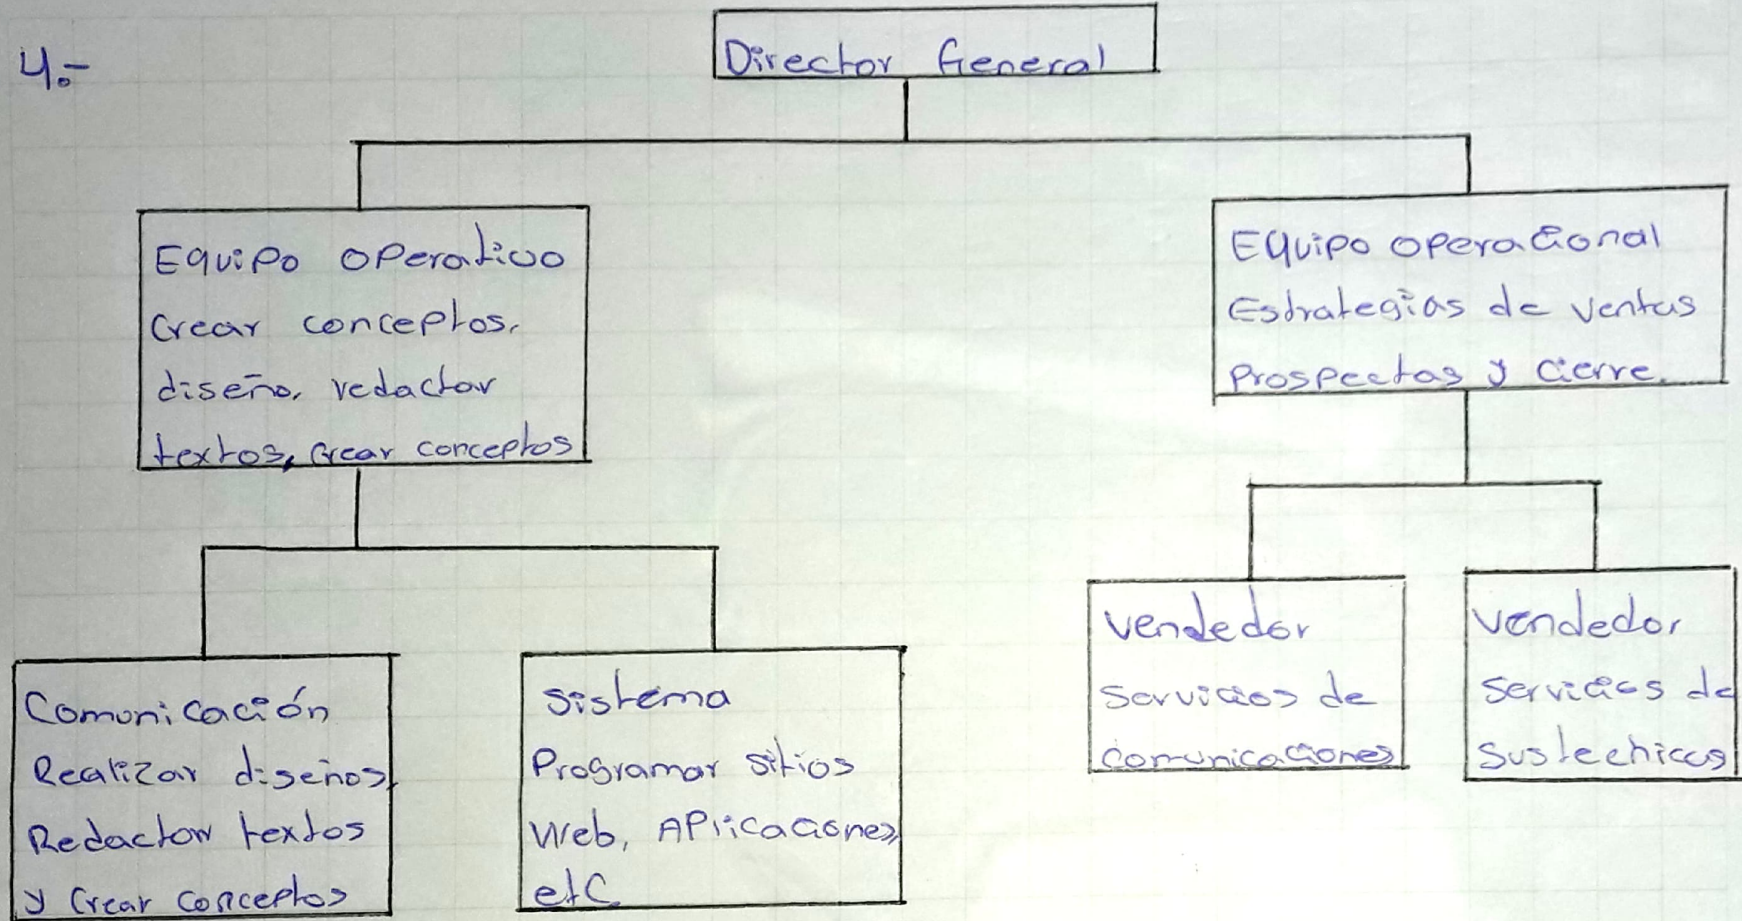 4.-
Director General
Equipo operativo
Crear conceptos,
diseño, redactar
textos, crear conceptos
Equipo operacional
Estrategias de ventas
Prospectos y cierre.
Comunicación
Realizar diseños,
Redactar textos
y Crear conceptos
Sistema
Programar sitios
Web, Aplicaciones,
etc
Vendedor
Servicios de
comunicaciones
Vendedor
Servicios de